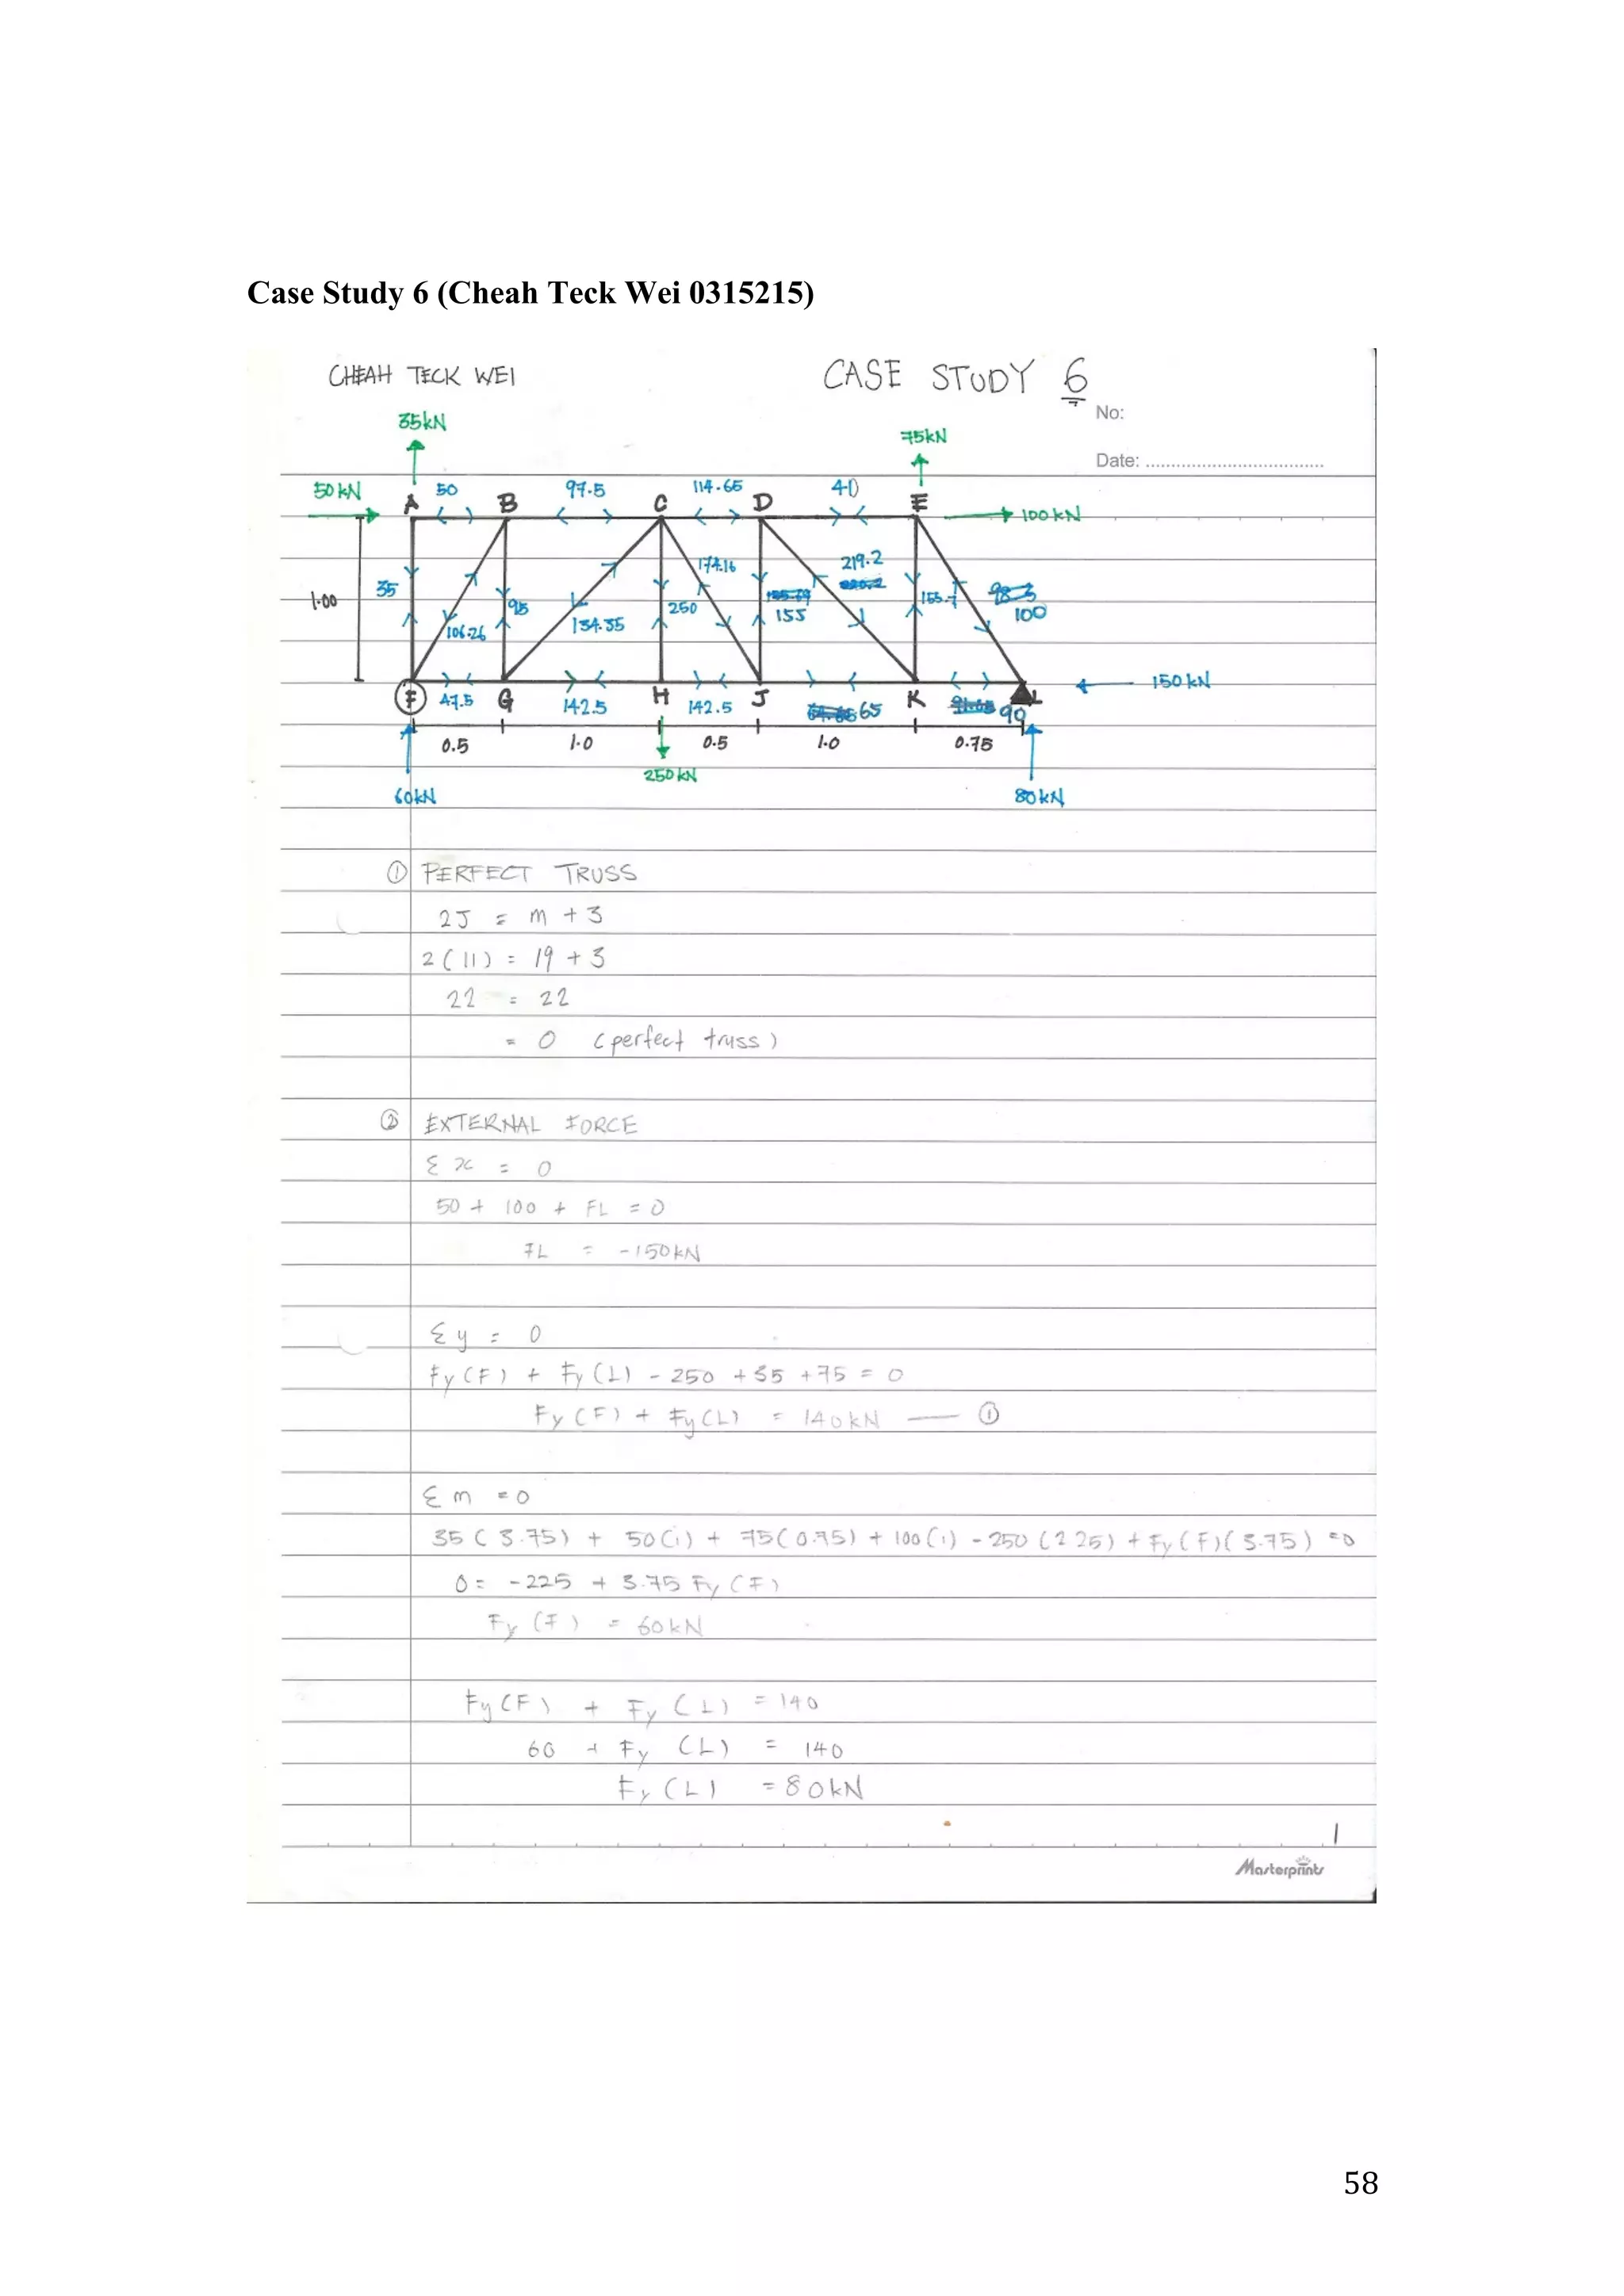 Case Study 6 (Cheah Teck Wei 0315215)
CHEAH TECK WEI
CASE STUDY 6
No:
Date:
35kN
75kN
50kN
A 50 B 97.5 C 114.65 D 40 E
100kN
1.00
35
106.26
95
134.35
250
174.16
155
219.2
155.7
100
F 47.5 G 142.5 H 142.5 J 65 K 90 L
150kN
0.5 1.0 0.5 1.0 0.75
250kN
60kN
80kN
① PERFECT TRUSS
2J = m + 3
2(11) = 19 + 3
22 = 22
= 0 (perfect truss)
② EXTERNAL FORCE
Σx = 0
50 + 100 + FL = 0
FL = -150kN
Σy = 0
Fy(F) + Fy(L) - 250 + 35 + 75 = 0
Fy(F) + Fy(L) = 140kN — ①
Σm = 0
35(3.75) + 50(1) + 75(0.75) + 100(1) - 250(2.25) + Fy(F)(3.75) = 0
0 = -225 + 3.75 Fy(F)
Fy(F) = 60kN
Fy(F) + Fy(L) = 140
60 + Fy(L) = 140
Fy(L) = 80kN
1
Masterprints
58